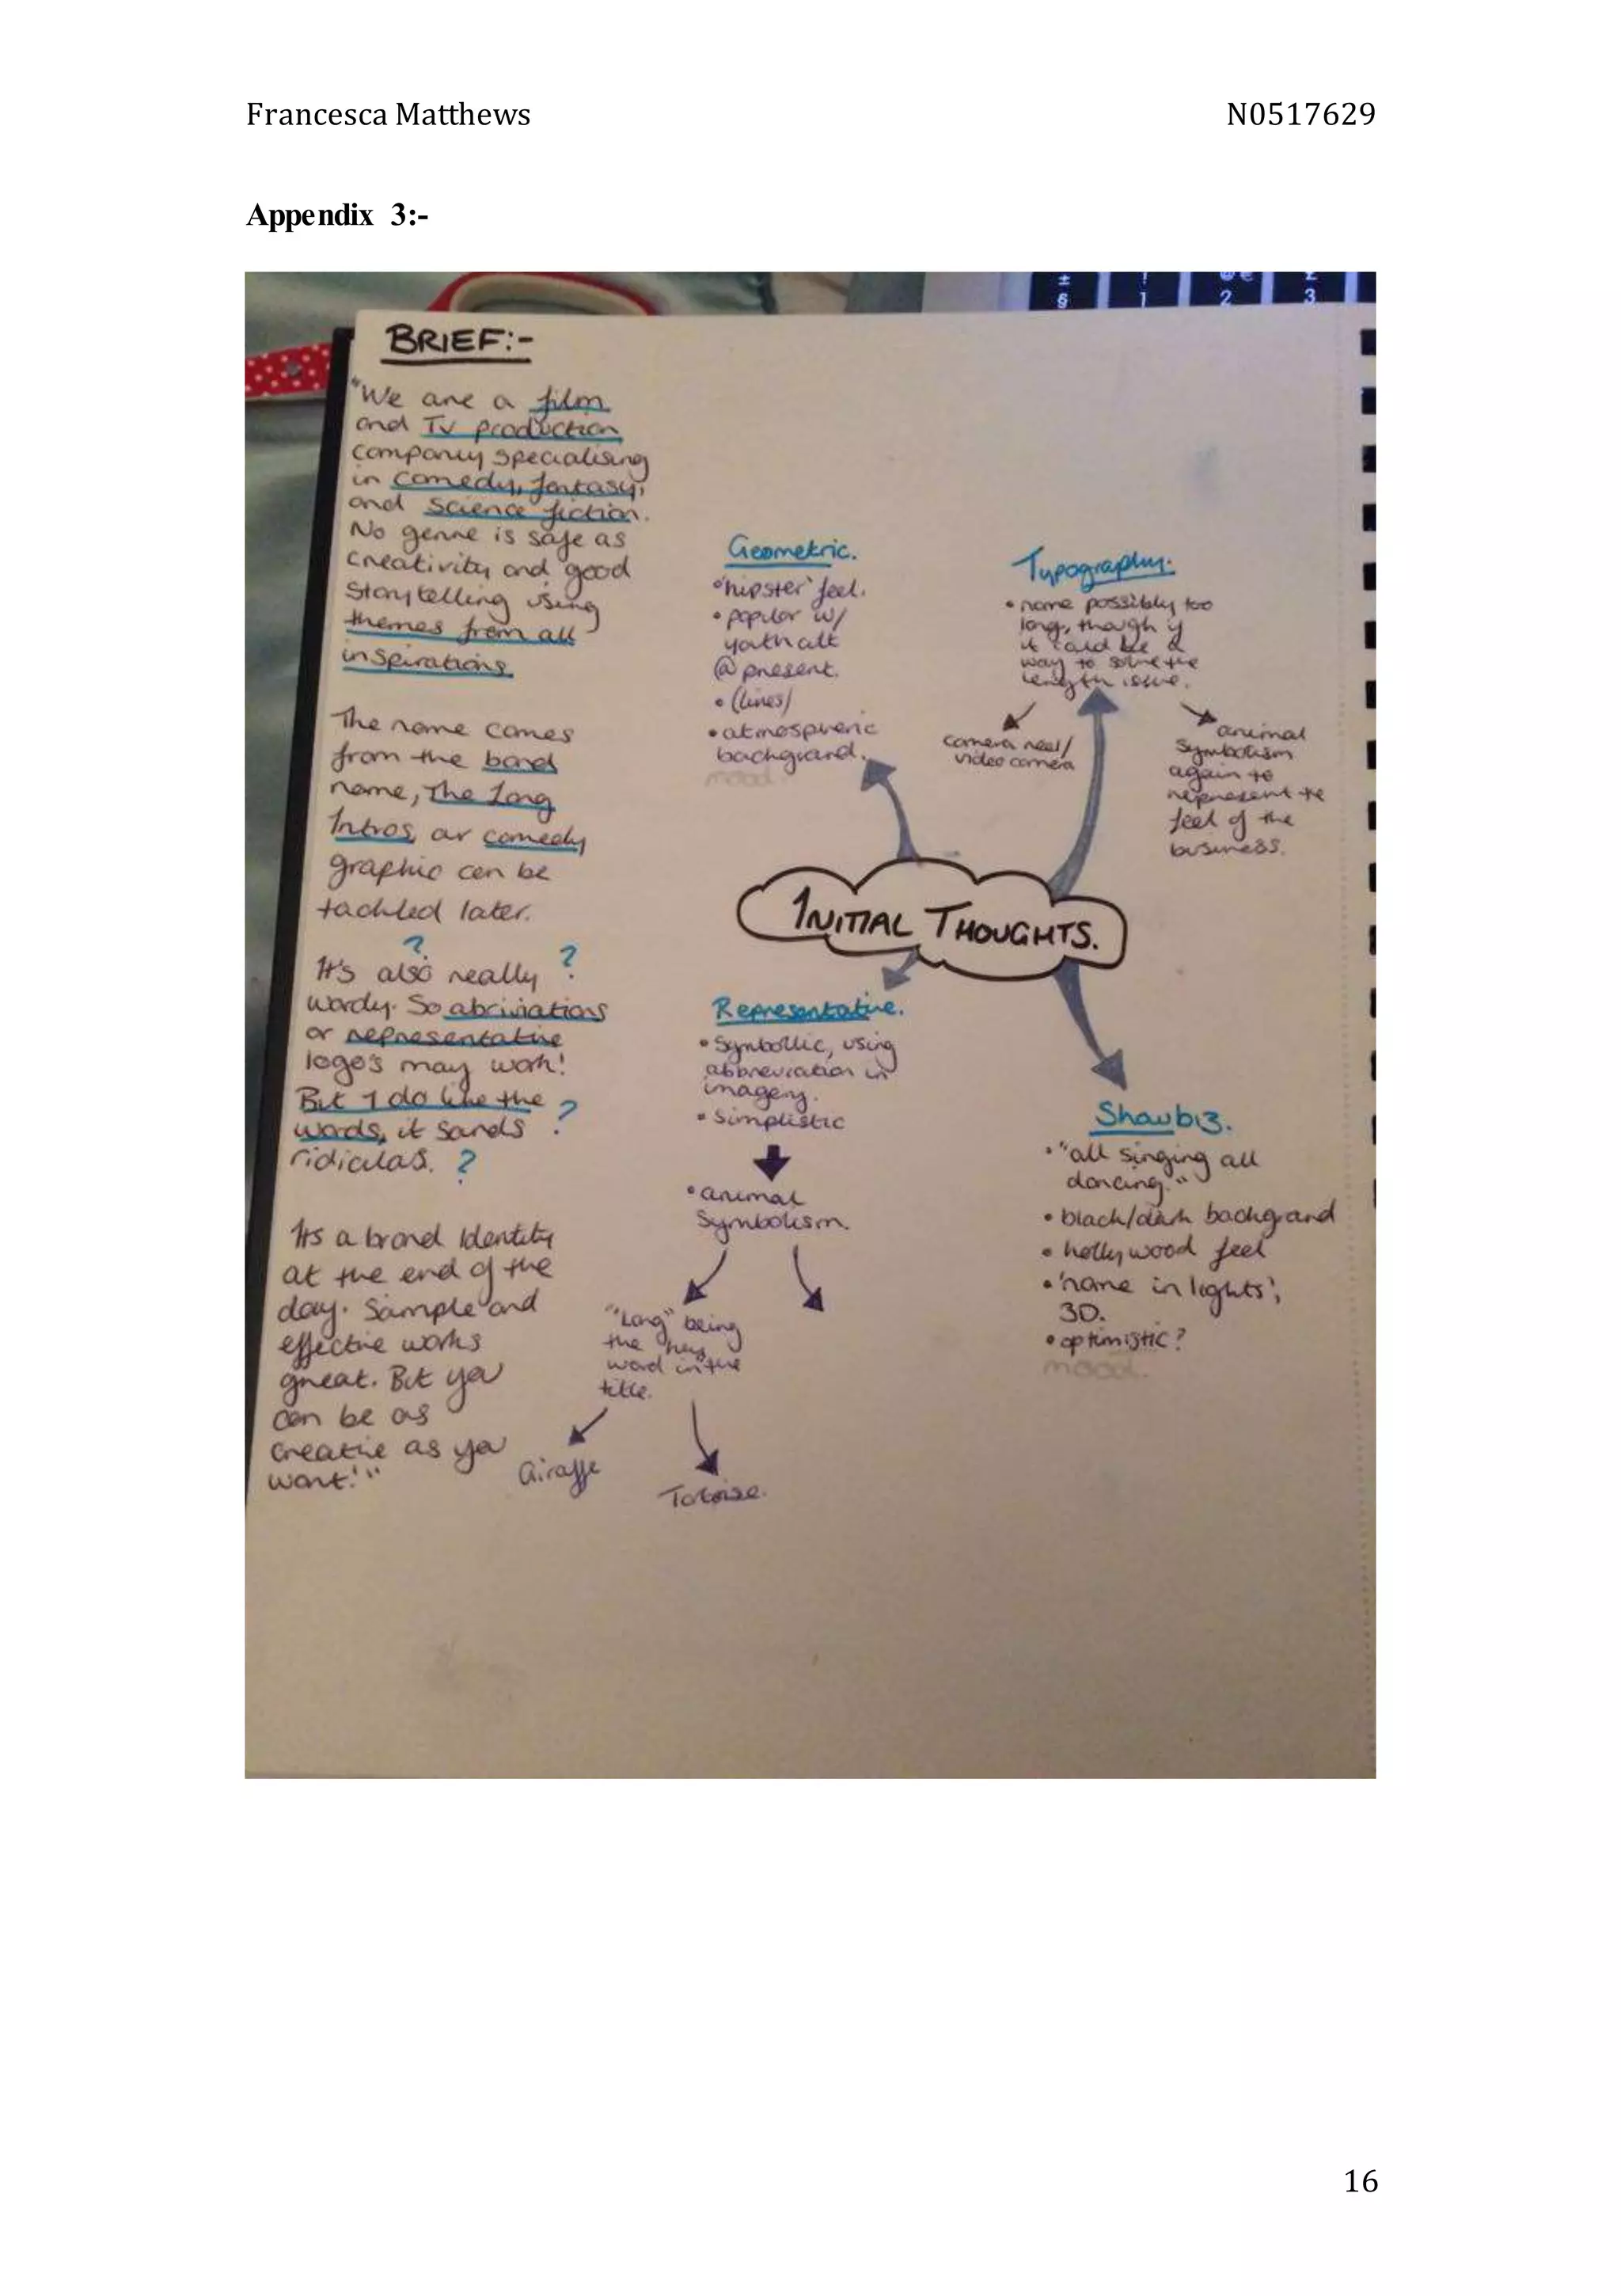 Francesca Matthews
N0517629
Appendix 3:-
±
§
!
1
€
2
£
3
BRIEF:-
"We are a film
and TV production
company specialising
in comedy, fantasy,
and science fiction.
No genre is safe as
creativity and good
storytelling using
themes from all
inspirations
The name comes
from the band
name, The Long
Intros, our comedy
graphic can be
tackled later.
?
It's also really ?
wordy. So abriviations
or representative
logo's may work!
But I do like the
words, it sounds ?
ridiculous. ?
It's a brand Identity
at the end of the
day. Simple and
effective works
great. But you
can be as
creative as you
want!"
Geometric.
• 'hipster' feel.
• popular w/
youth cult
@ present.
• (lines)
• atmospheric
background.
mood
Typography.
• name possibly too
long, though if
it could be a
way to solve the
length issue.
camera reel/
video camera
animal
symbolism
again to
represent the
feel of the
business.
INITIAL THOUGHTS.
Representative.
• Symbollic, using
abbreviation in
imagery.
• Simplistic
• animal
Symbolism.
"Long" being
the key
word in the
title.
Giraffe
Tortoise.
Showbiz.
• "all singing all
dancing."
• black/dark background
• hollywood feel
• 'name in lights',
3D.
• optimistic?
mood.
16